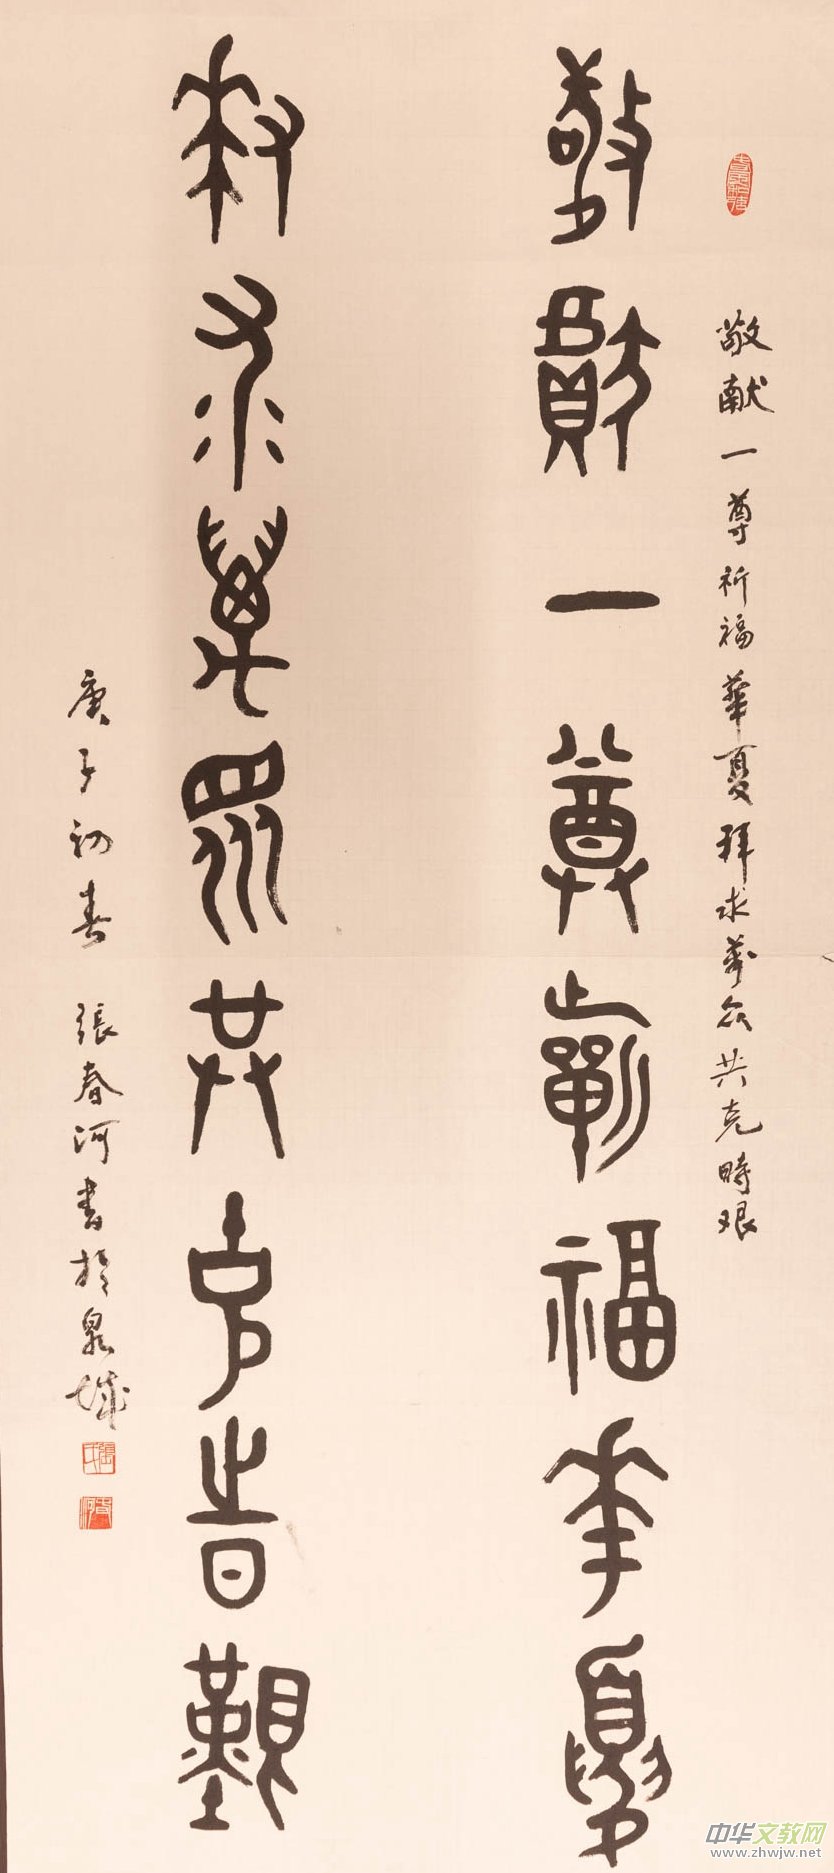 敬献一尊祈福華夏拜求萬众共克時艰
敬獻一尊祈福華夏
拜求萬眾共克時艱
庚子初春 張春河書於泉城
中华文教网
www.zhwjw.net